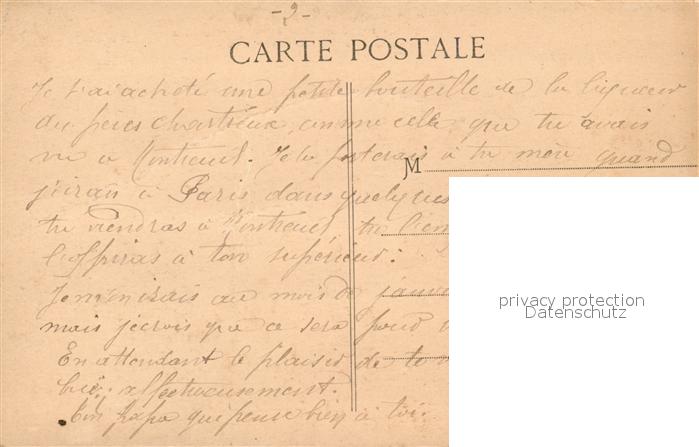 -2-
CARTE POSTALE
Je t'ai acheté une petite bouteille de la liqueur
des pères Chartreux, comme celle que tu avais
vu à Montreuil. Je la porterais à ta mère quand
j'irai à Paris dans quelques
tu viendras à Montreuil tu
l'offriras à ton supérieur.
M
Je m'en irais au mois de janv
mais je crois que ce sera pour
En attendant le plaisir de te
bien affectueusement.
Ton Papa qui pense bien à toi.
privacy protection
Datenschutz